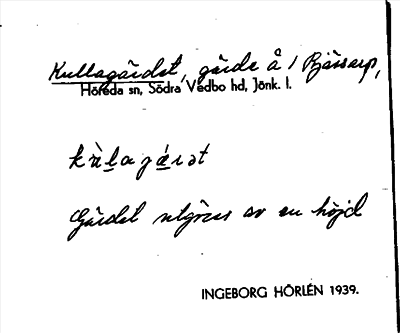 Kullagärdet, gärde å 1 Bjärsarp,
Höreda sn, Södra Vedbo hd, Jönk. l.
Gärdet utgöres av en höjd
INGEBORG HÖRLÉN 1939.